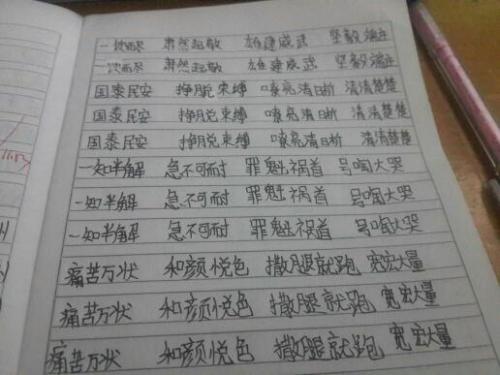 一饮而尽 肃然起敬 雄健威武 坚毅端庄
一饮而尽 肃然起敬 雄健威武 坚毅端庄
国泰民安 挣脱束缚 嘹亮清晰 清清楚楚
国泰民安 挣脱束缚 嘹亮清晰 清清楚楚
国泰民安 挣脱束缚 嘹亮清晰 清清楚楚
一知半解 急不可耐 罪魁祸首 号啕大哭
一知半解 急不可耐 罪魁祸首 号啕大哭
一知半解 急不可耐 罪魁祸首 号啕大哭
痛苦万状 和颜悦色 撒腿就跑 宽宏大量
痛苦万状 和颜悦色 撒腿就跑 宽宏大量
痛苦万状 和颜悦色 撒腿就跑 宽宏大量